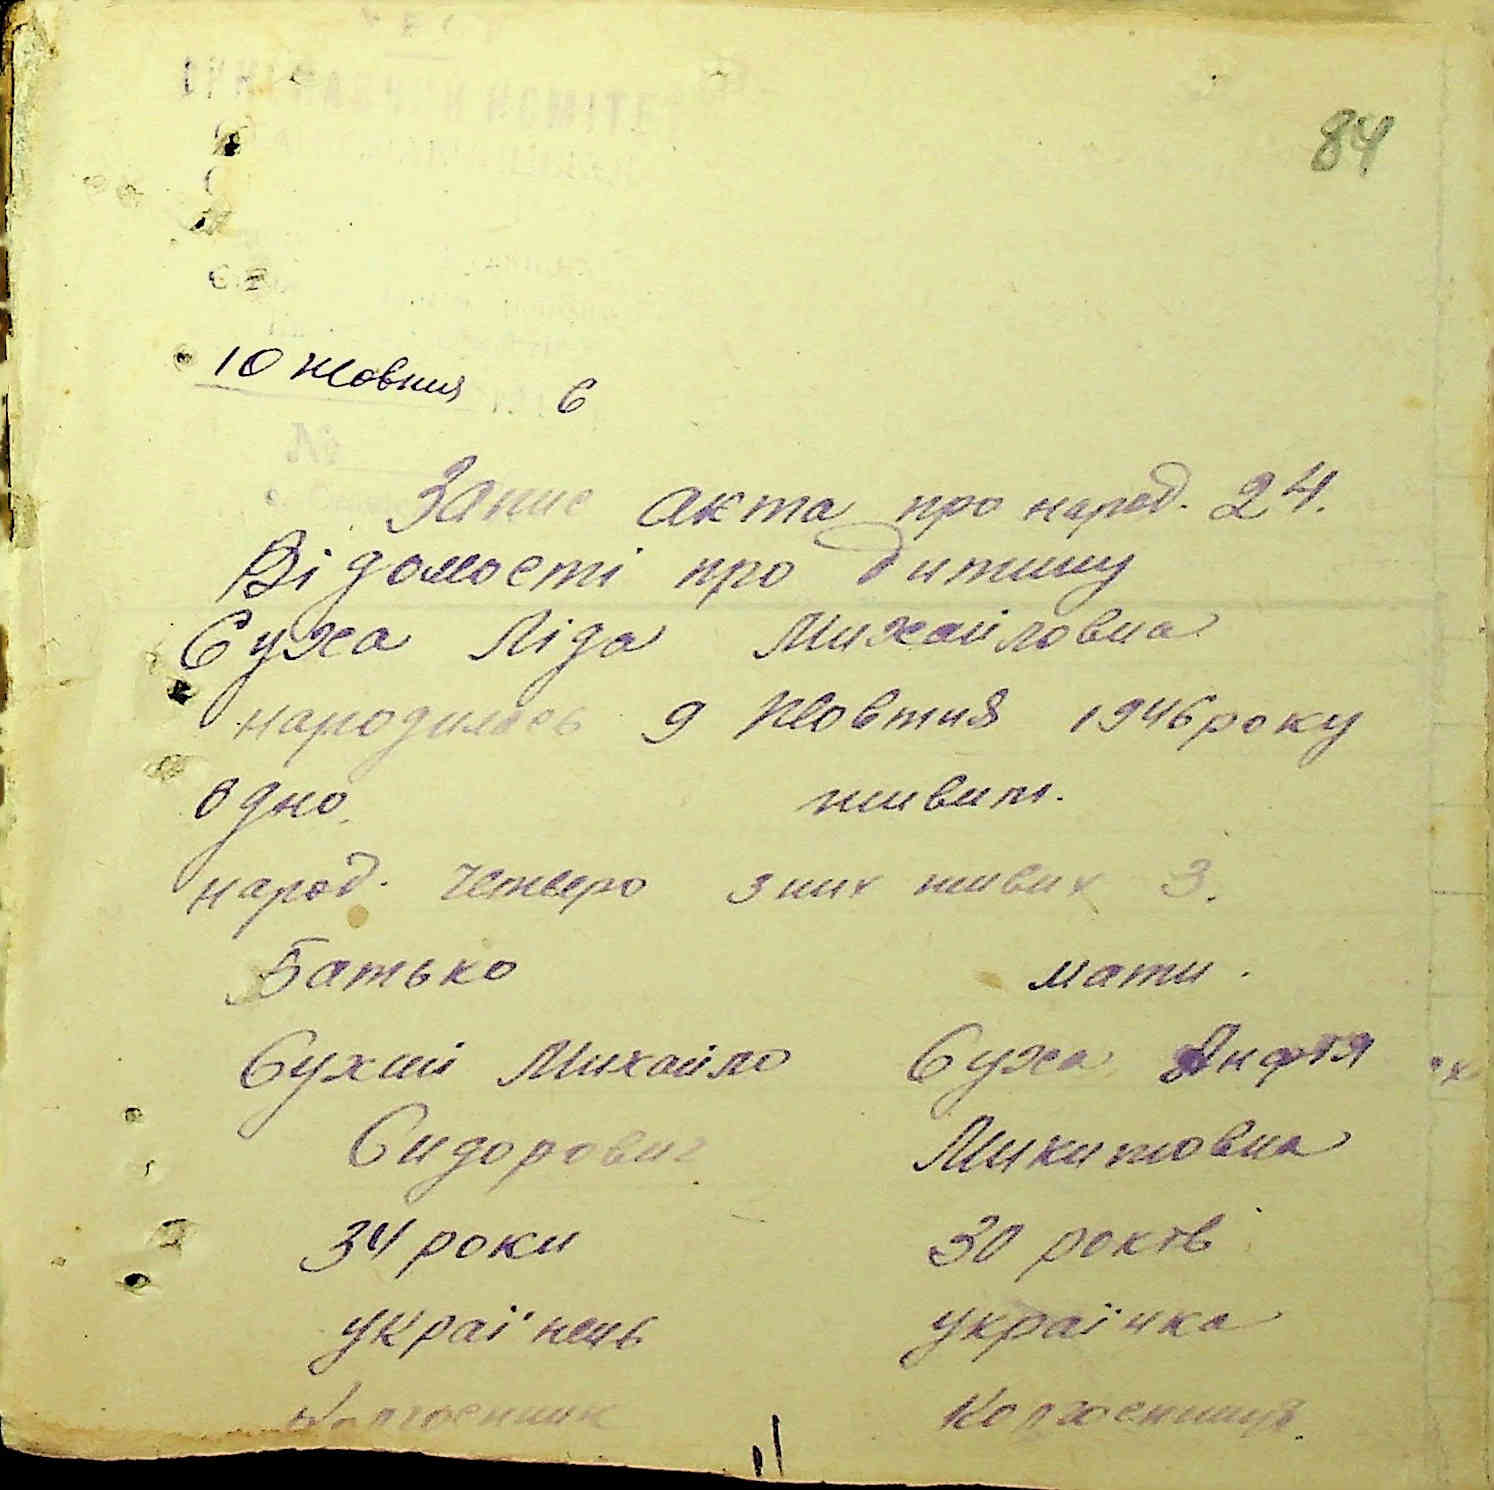 84
10 жовтня 6
Запис акта про народ. 24.
Відомості про дитину
Суха Ліда Михайловна
народилась 9 Жовтня 1946 року
одно. живит.
народ. четверо з них живих 3.
Батько мати.
Сухий Михайло Суха Янфтя
Сидорович Микитовна
34 роки 30 років
україنець українка
Колгоспник Колгоспниця.